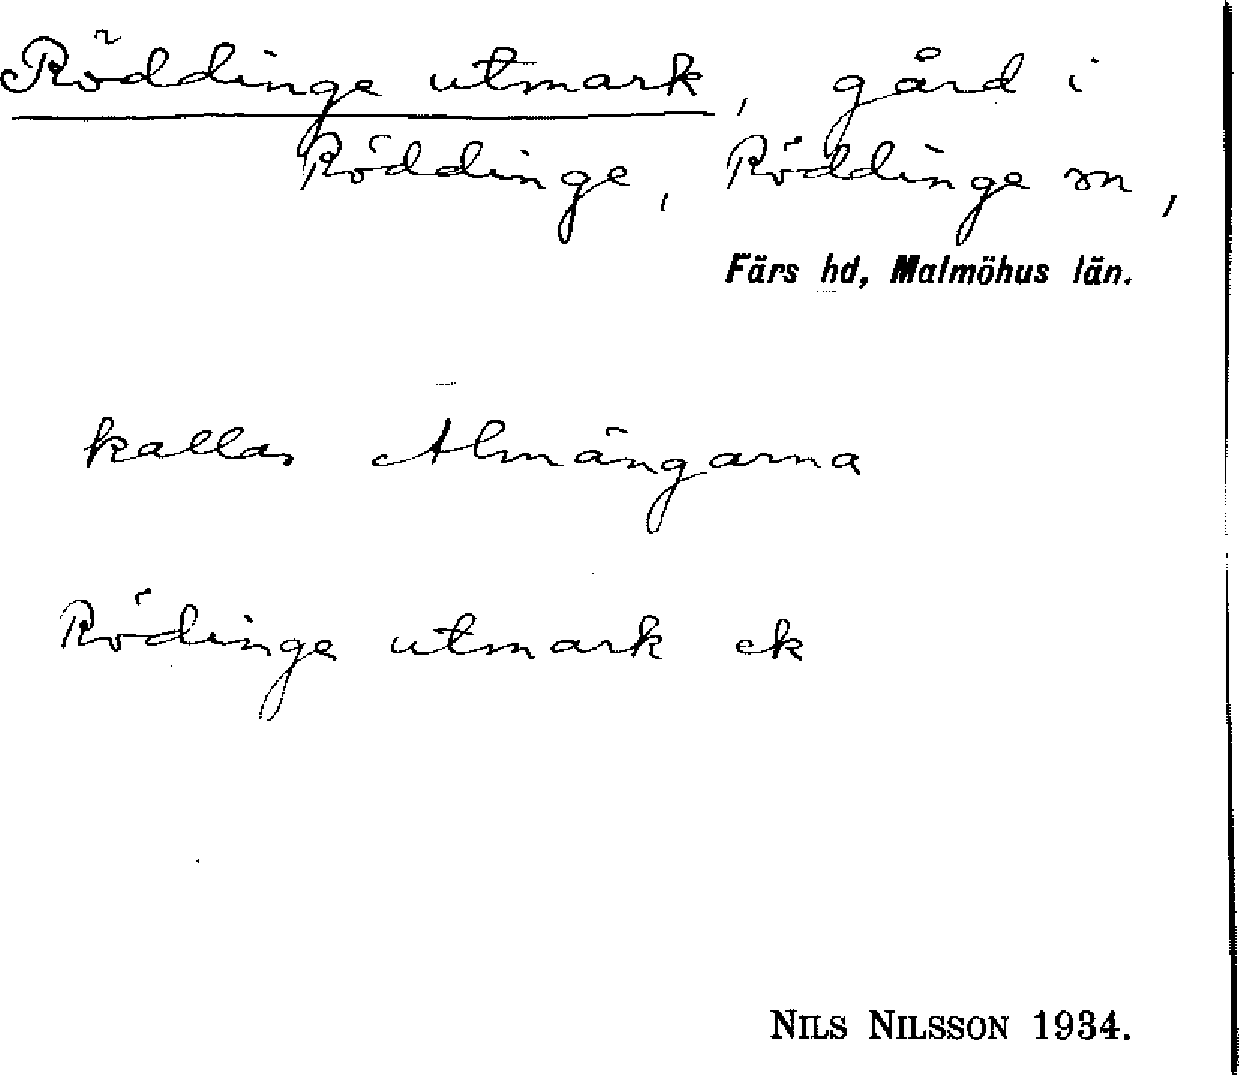 Röddinge utmark, gård i
Röddinge, Röddinge sn,
Färs hd, Malmöhus län.
kallas Almängarna
Rödinge utmark ek
NILS NILSSON 1934.